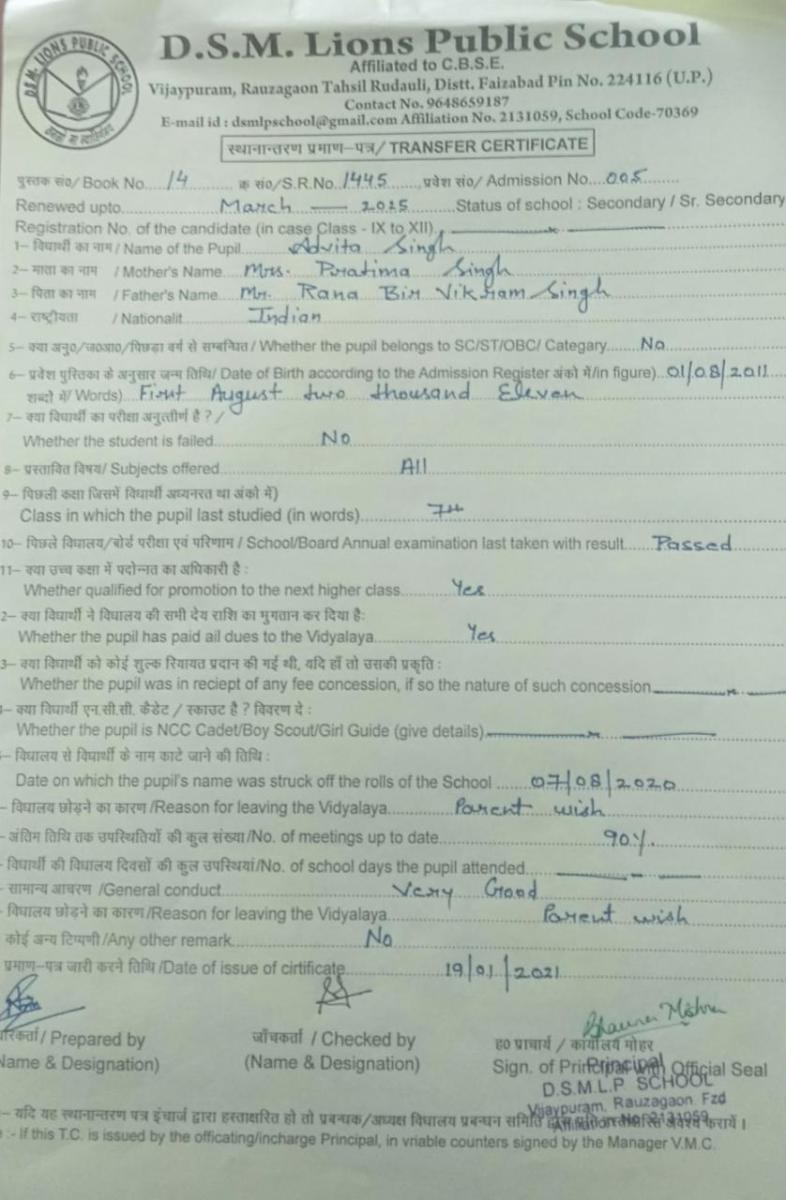 D.S.M. LIONS PUBLIC SCHOOL
D.S.M. Lions Public School
Affiliated to C.B.S.E.
Vijaypuram, Rauzagaon Tahsil Rudauli, Distt. Faizabad Pin No. 224116 (U.P.)
Contact No. 9648659187
E-mail id : dsmlpschool@gmail.com Affiliation No. 2131059, School Code-70369
स्थानान्तरण प्रमाण–पत्र/ TRANSFER CERTIFICATE
पुस्तक सं०/ Book No. 14 क्र सं०/S.R.No. 1445 प्रवेश सं०/ Admission No. 005
Renewed upto March — 2025 Status of school : Secondary / Sr. Secondary
Registration No. of the candidate (in case Class - IX to XII)
1– विद्यार्थी का नाम / Name of the Pupil Advita Singh
2– माता का नाम / Mother's Name Mrs. Pratima Singh
3– पिता का नाम / Father's Name Mr. Rana Bir Vikram Singh
4– राष्ट्रीयता / Nationalit Indian
5– क्या अनु०/ज०आ०/पिछड़ा वर्ग से सम्बन्धित / Whether the pupil belongs to SC/ST/OBC/ Categary No
6– प्रवेश पुस्तिका के अनुसार जन्म तिथि/ Date of Birth according to the Admission Register अंको में/in figure) 01/08/2011
शब्दो में/ Words) First August two thousand Eleven
7– क्या विद्यार्थी का परीक्षा अनुत्तीर्ण है ? /
Whether the student is failed No
8– प्रस्तावित विषय/ Subjects offered All
9– पिछली कक्षा जिसमें विद्यार्थी अध्यनरत था अंको में)
Class in which the pupil last studied (in words) 7th
10– पिछले विद्यालय/बोर्ड परीक्षा एवं परिणाम / School/Board Annual examination last taken with result Passed
11– क्या उच्च कक्षा में पदोन्नत का अधिकारी है :
Whether qualified for promotion to the next higher class Yes
2– क्या विद्यार्थी ने विद्यालय की सभी देय राशि का भुगतान कर दिया है:
Whether the pupil has paid ail dues to the Vidyalaya Yes
3– क्या विद्यार्थी को कोई शुल्क रियायत प्रदान की गई थी, यदि हाँ तो उसकी प्रकृति :
Whether the pupil was in reciept of any fee concession, if so the nature of such concession
– क्या विद्यार्थी एन.सी.सी. कैडेट / स्काउट है ? विवरण दे :
Whether the pupil is NCC Cadet/Boy Scout/Girl Guide (give details)
– विद्यालय से विद्यार्थी के नाम काटे जाने की तिथि :
Date on which the pupil's name was struck off the rolls of the School 07/08/2020
- विद्यालय छोड़ने का कारण /Reason for leaving the Vidyalaya Parent wish
- अंतिम तिथि तक उपस्थितियों की कुल संख्या/No. of meetings up to date 90%
- विद्यार्थी की विद्यालय दिवसों की कुल उपस्थियां/No. of school days the pupil attended
- सामान्य आचरण /General conduct Very Good
- विद्यालय छोड़ने का कारण /Reason for leaving the Vidyalaya Parent wish
कोई अन्य टिप्पणी /Any other remark No
प्रमाण–पत्र जारी करने तिथि /Date of issue of cirtificate 19/01/2021
/ Prepared by जाँचकर्ता / Checked by ह० प्राचार्य / कार्यालय मोहर
Name & Designation) (Name & Designation) Sign. of Principal with Official Seal
Principal
D.S.M.L.P. SCHOOL
Vijaypuram, Rauzagaon, Fzd
Affiliation No-2131059
– यदि यह स्थानान्तरण पत्र इंचार्ज द्वारा हस्ताक्षरित हो तो प्रबन्धक/अध्यक्ष विद्यालय प्रबन्धन समिति द्वारा अवश्य करायें ।
:- If this T.C. is issued by the officating/incharge Principal, in vriable counters signed by the Manager V.M.C.